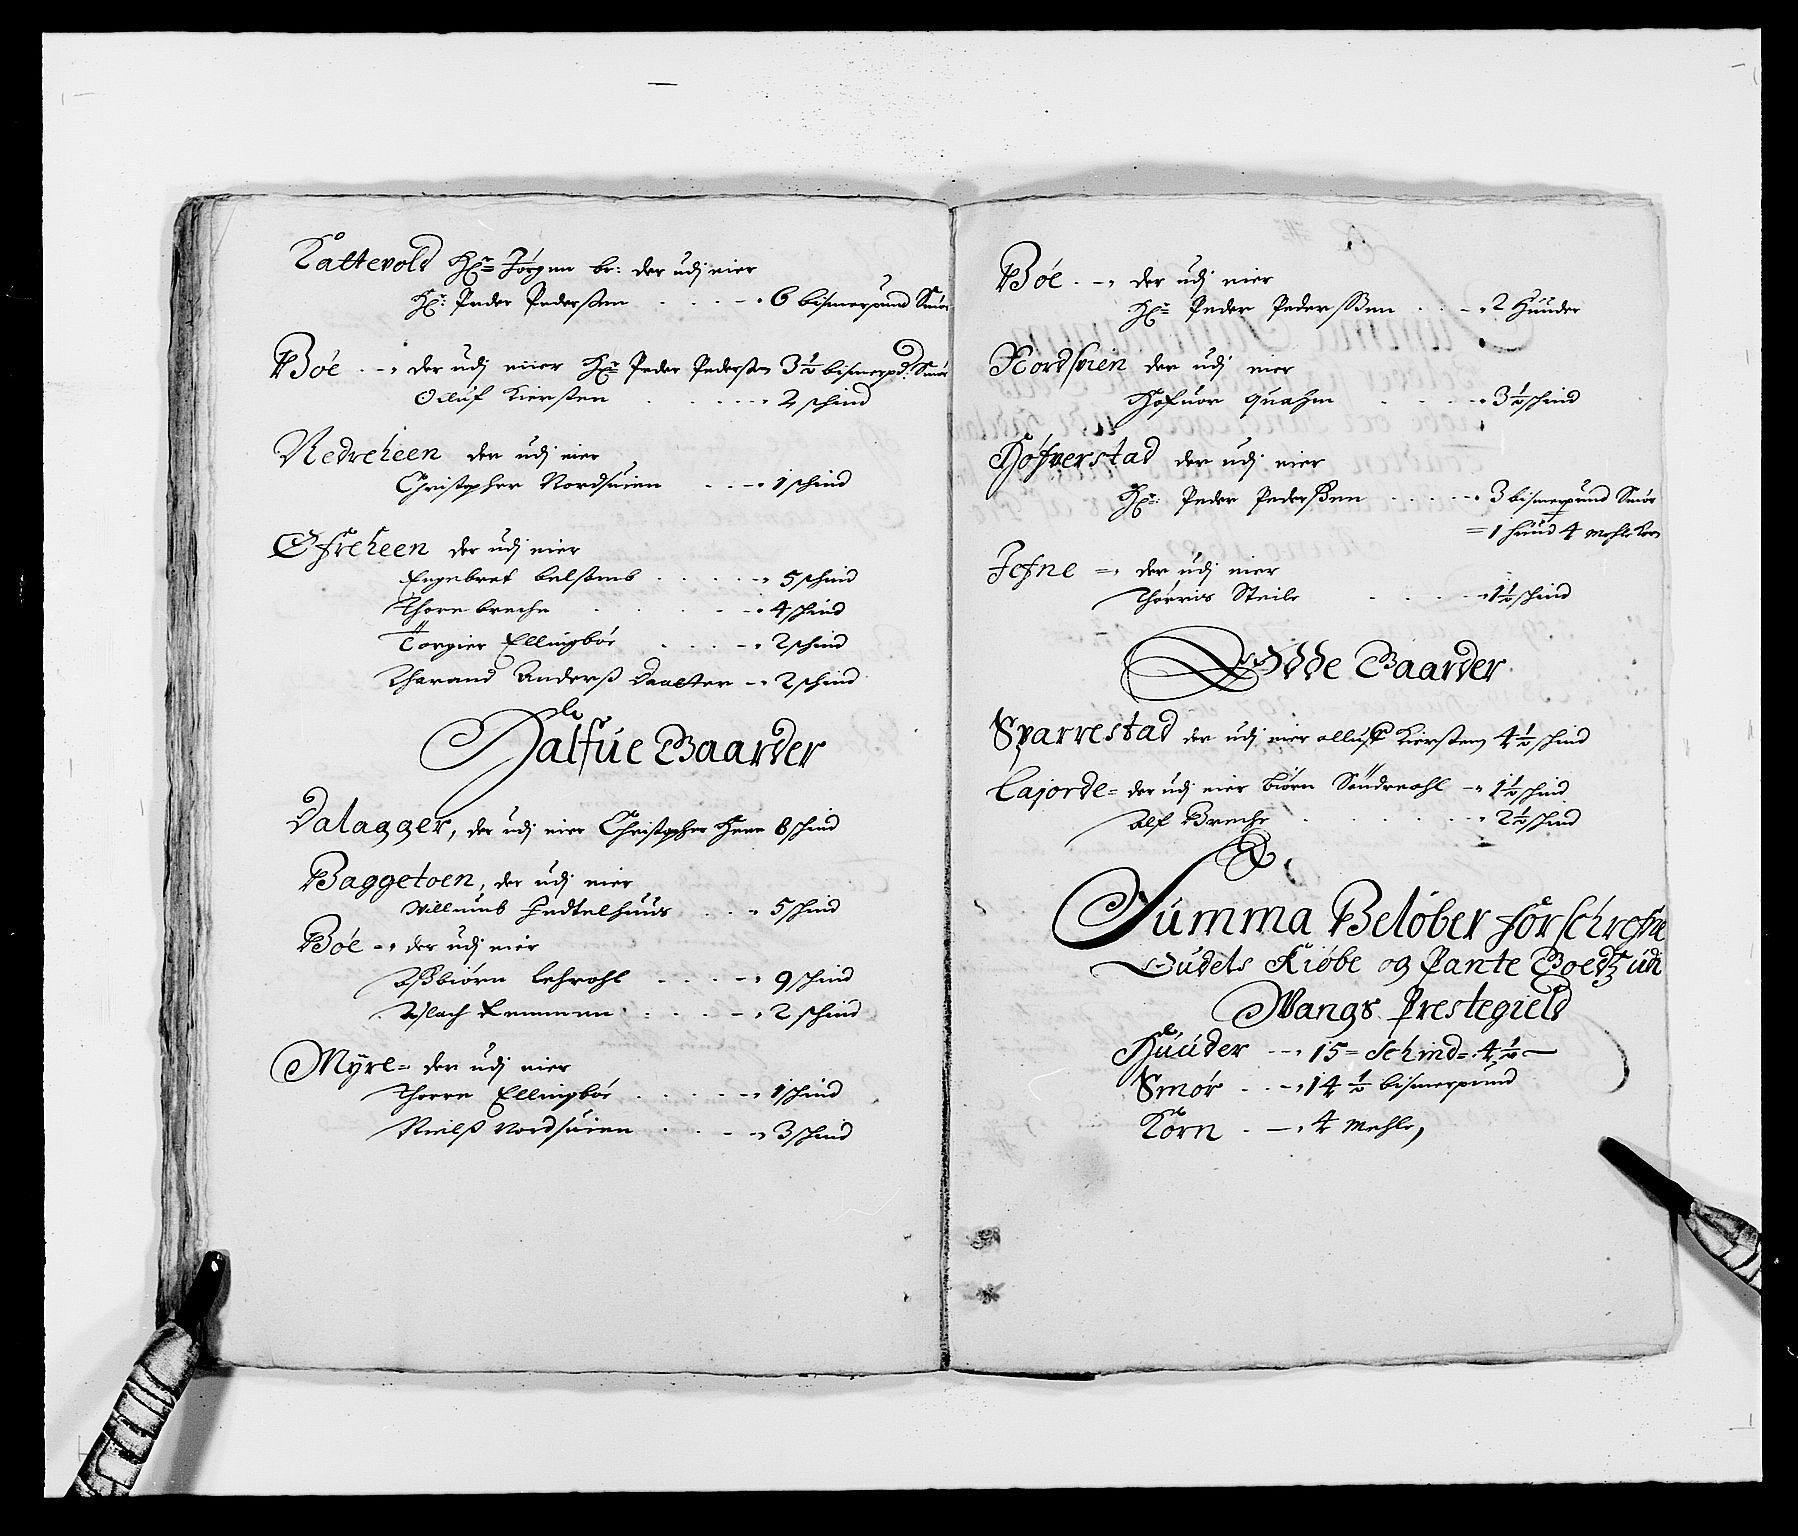 Kattevold Hr: Jörgen br: der udj eier
Hr: Peder Pedersen . . . . 6 bismerpund Smör
Böe . . der udj eier Hr: Peder Pedersen 3½ bismerpd: Smör
Olluf Kiersten . . . . . 2 schind
Nedreheen der udj eier
Christopher Nordsuien . . . 1 schind
Öfreheen der udj eier
Engebret . . . . . 5 schind
Thore breche . . . . 4 schind
Torgier Ellingböe . . . . 2 schind
Tharand Anderß 2 schind
Halfue Gaarder
Dalagger, der udj eier Christopher Heen 8 schind
Baggetoen, der udj eier
Willumb . . 5 schind
Böe - der udj eier
Aßbiörn . . . . 9 schind
Aslach . . . . 2 schind
Myre = der udj eier
Thorre Ellingböe . . . . . 1 schind
Nielß Nordsuien . . . . 3 schind
Böe . . der udj eier
Hr: Peder Pederßen . . . 2 Huuder
Nordsvien der udj eier
Hofuor Quahm . . . . 3½ schind
Höfverstad der udj eier
Hr: Peder Pederßen . . . . . 3 bismerpund Smör
= 1 huud 4 mehle Korn
Jofne = der udj eier
Thorris Steile . . . . 1½ schind
Ödde Gaarder
Sparrestad der udj eier olluf Kiersten 4½ schind
Cajorde = der udj eier biörn Söndreohl 1½ schind
Alf Breche . . . . . . 2½ schind
Summa Belöber forschrefne
Gudets Kiöbe og Pante Goedtz udi
Wangs Prestegield
Huuder . . 15 = Schind = 4½
Smör . . . 14½ bismerpund
Korn . . 4 mehle,